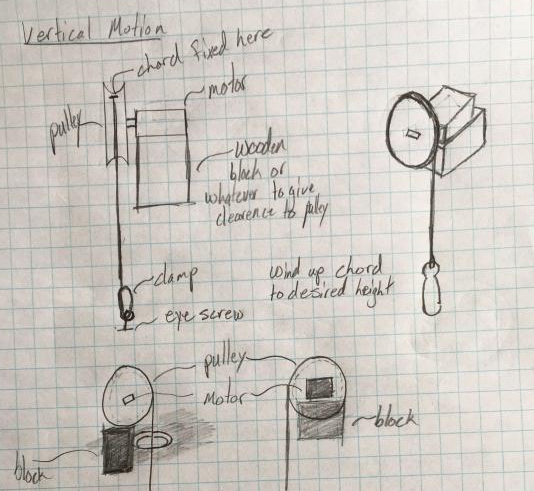 Vertical Motion
chord fixed here
motor
pulley
wooden
block or
whatever to give
clearence to pulley
clamp
eye screw
wind up chord
to desired height
pulley
Motor
block
block